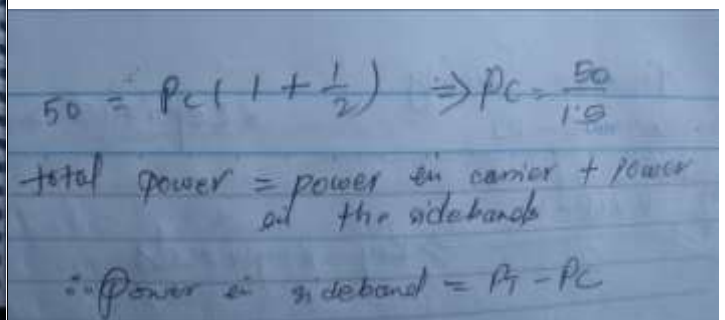 50 = Pc ( 1 + 1/2 ) ⇒ Pc = 50/1.5
total power = power in carrier + power
in the sidebands
∴ Power in sideband = PT - PC